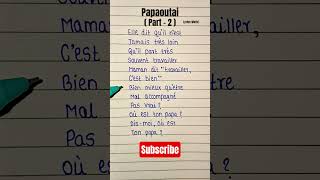 Papaoutai
( Part - 2 )
Elle dit qu'il n'est
Jamais très loin
Qu'il part très
Souvent travailler
Maman dit "travailler,
C'est bien"
Bien mieux qu'être
Mal accompagné
Pas vrai ?
Où est ton papa ?
Dis-moi, où est
Ton papa ?
Subscribe